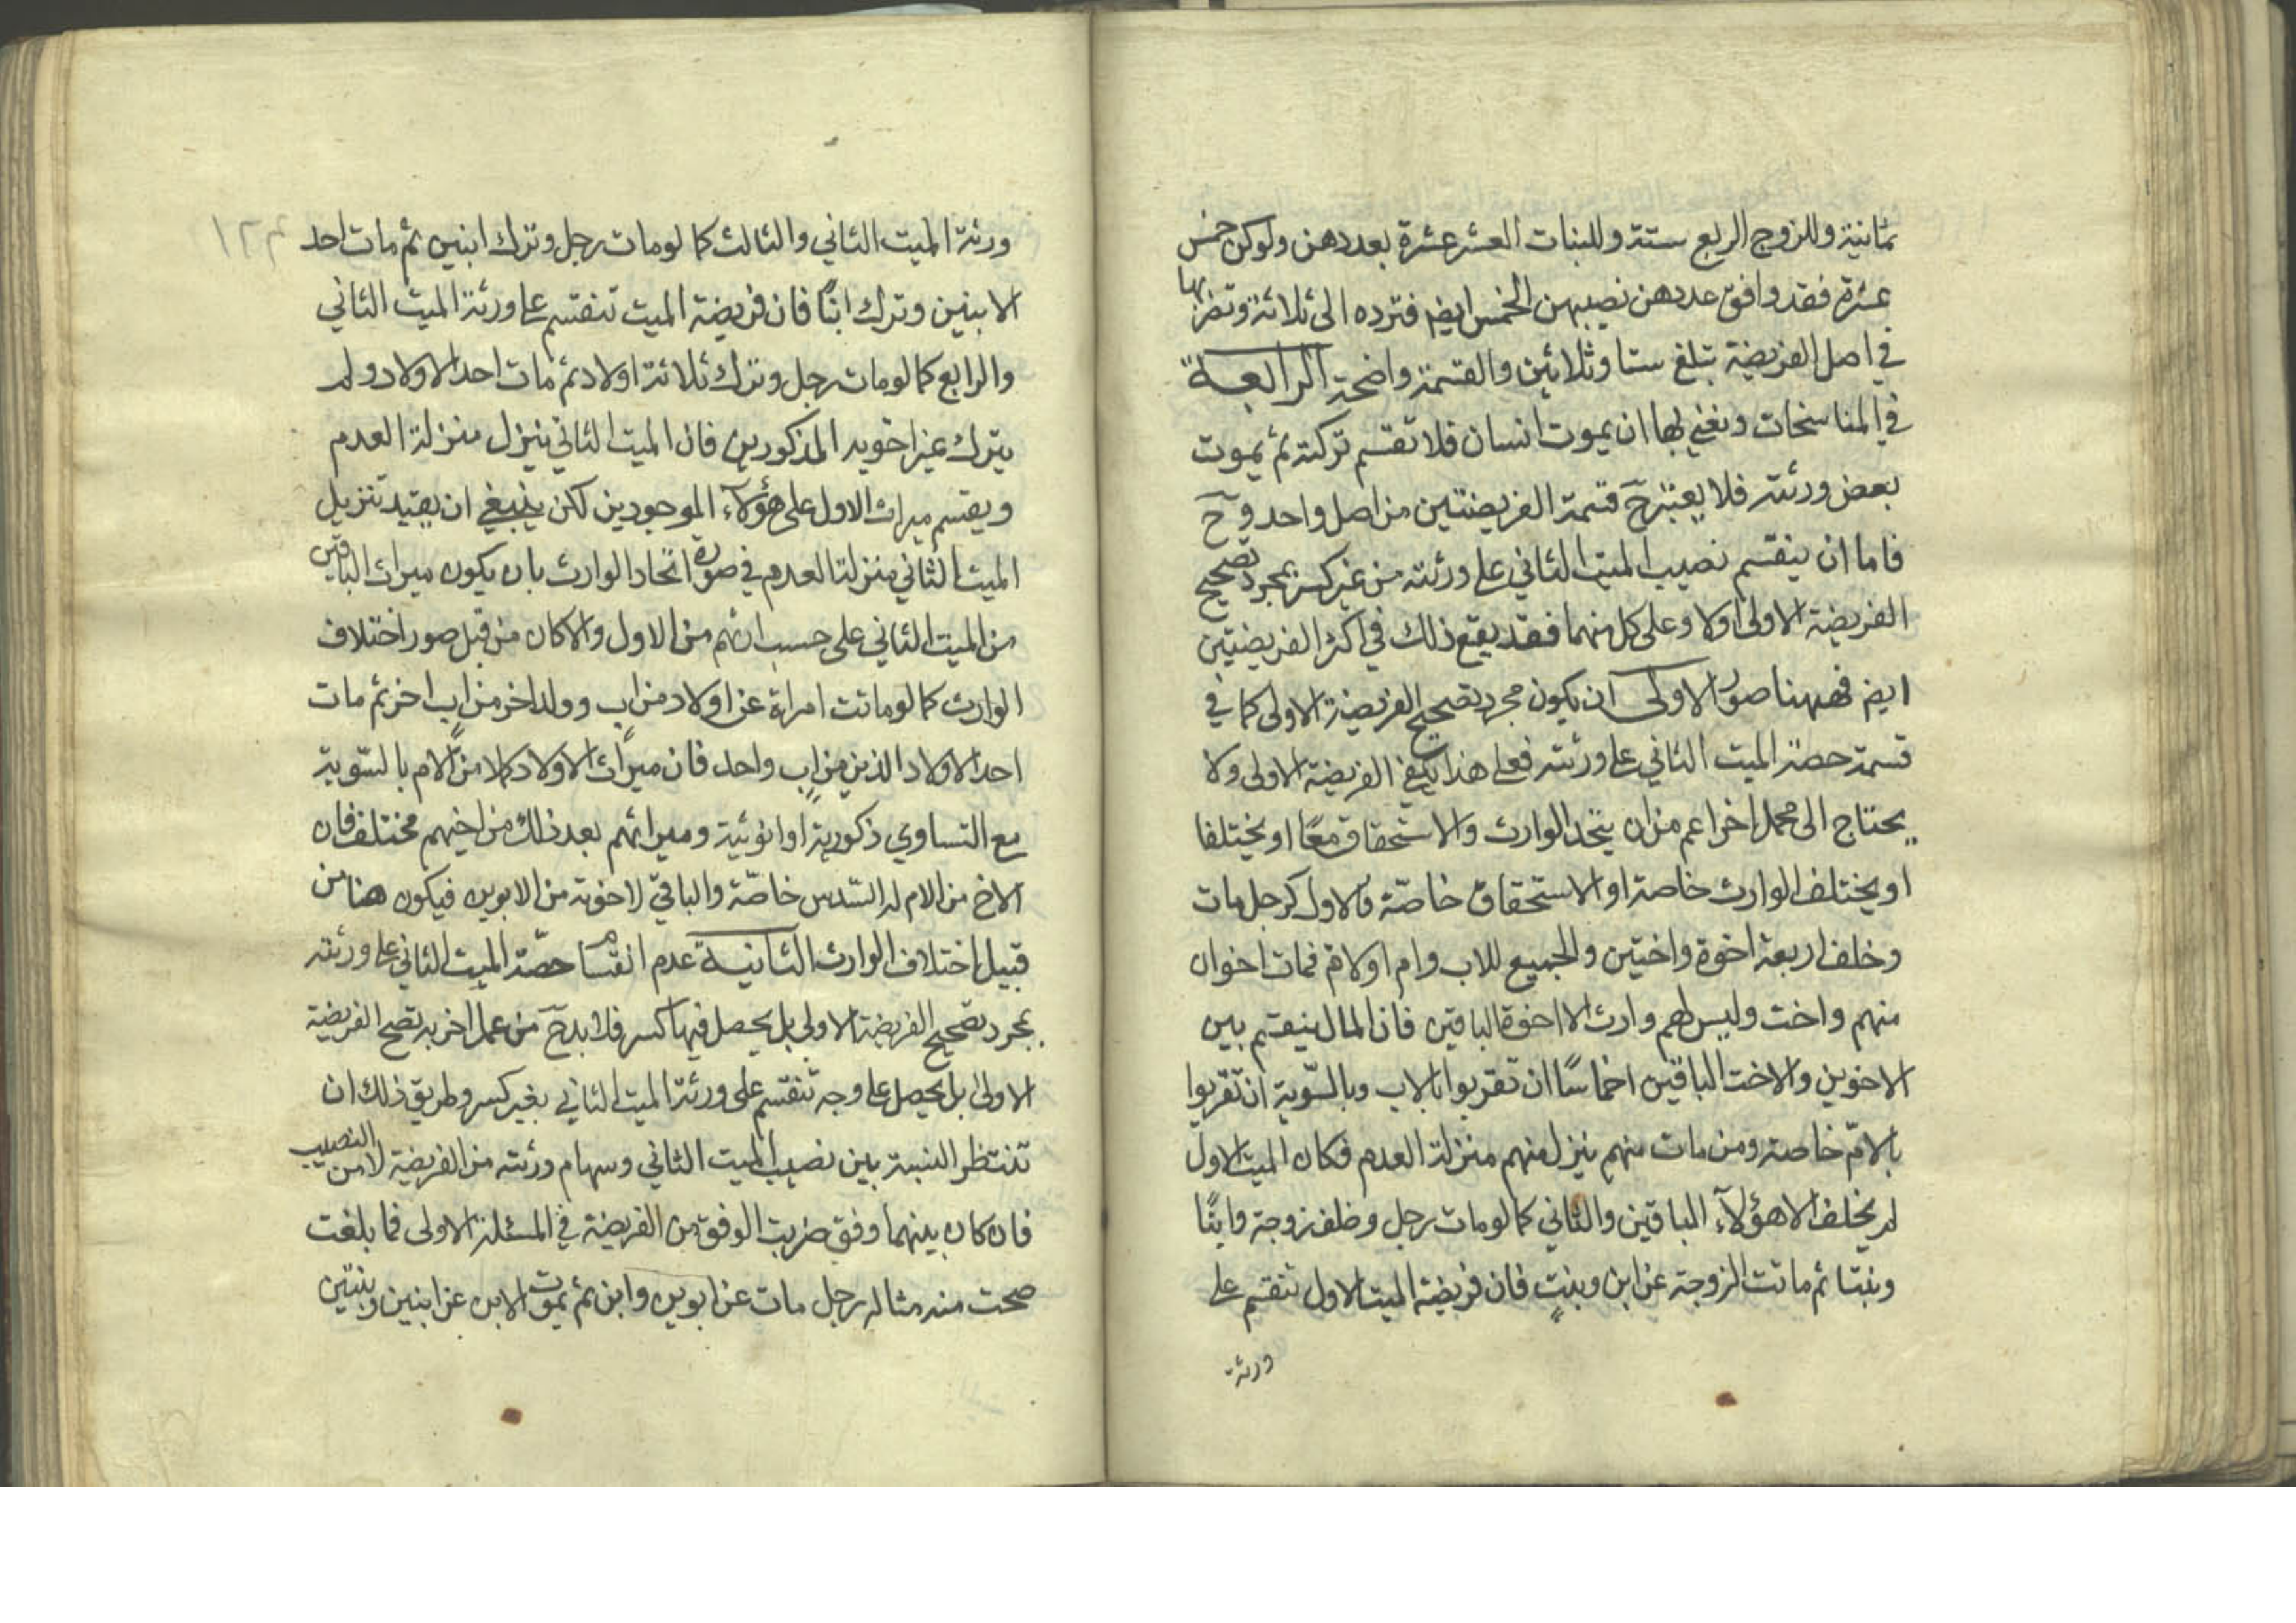 ثمانية وللزوج الربع ستة وللبنات العشر عشرة بعددهن ولوكن خمس
عشرة فقد وافق عددهن نصيبهن الخمس ايض فترده الى ثلاثة وتضربها
في اصل الفريضة تبلغ ستا وثلاثين والقسمة واضحة الرابعة
في المناسخات ونعني بها ان يموت انسان فلا تقسم تركته ثم يموت
بعض ورثته فلا يعتبر ح قسمة الفريضتين من اصل واحد و ح
فاما ان ينقسم نصيب الميت الثاني على ورثته من غير كسر بمجرد تصحيح
الفريضة الاولى اولا وعلى كل منهما فقد يقع ذلك في اكثر الفريضتين
ايض فههنا صور الاولى ان يكون مجرد تصحيح الفريضة الاولى كما في
قسمة حصة الميت الثاني على ورثته فعلى هذا يكفي الفريضة الاولى ولا
يحتاج الى محمل اخر اعم من ان يتحد الوارث والاستحقاق معًا او يختلفا
او يختلف الوارث خاصة او الاستحقاق خاصّة فالاول كرجل مات
وخلف اربعة اخوة واختين والجميع للاب وام اولام فمات اخوان
منهم واخت وليس لهم وارث الا اخوة الباقين فان المال ينقسم بين
الاخوين والاخت الباقين اخماسًا ان تقربوا بالاب وبالسّوية ان تقربوا
بالامّ خاصة ومن مات منهم ينزل منهم منزلة العدم فكان الميت الاول
لم يخلف الا هؤلآء الباقين والثاني كما لو مات رجل وخلف زوجة وابنًا
وبنتا ثم ماتت الزوجة عن ابن وبنت فان فريضة الميت الاول تنقسم على
ورثة
ورثة الميت الثاني والثالث كما لو مات رجل وترك ابنين ثم مات احد
الابنين وترك ابنًا فان فريضة الميت تنقسم على ورثة الميت الثاني
والرابع كما لو مات رجل وترك ثلاثة اولاد ثم مات احد الاولاد ولم
يترك غير اخويه المذكورين فان الميت الثاني ينزل منزلة العدم
ويقسم ميراث الاول على هؤلآء الموجودين لكن ينبغي ان يقيد تنزيل
الميت الثاني منزلة العدم في صورة اتحاد الوارث بان يكون ميراث الباقين
من الميت الثاني على حسب ارثهم من الاول والا كان من قبل صور اختلاف
الوارث كما لو ماتت امراة عن اولاد من اب وولد اخر من اب اخر ثم مات
احد الاولاد الذين من اب واحد فان ميراث الاولاد كلا من الام بالسّوية
مع التساوي ذكورية او انوثية وميراثهم بعد ذلك من اخيهم مختلف فان
الاخ من الام له السّدس خاصّة والباقي لاخوته من الابوين فيكون هنا من
قبيل اختلاف الوارث الثانية عدم انقسام حصّة الميت الثاني على ورثته
بمجرد تصحيح الفريضة الاولى بل يحصل فيها كسر فلا بد ح من عمل اخر به تصح الفريضة
الاولى بل يحصل على وجه تنقسم على ورثة الميت الثاني بغير كسر وطريق ذلك ان
تنتظر النسبة بين نصيب الميت الثاني وسهام ورثته من الفريضة لا من النصيب
فان كان بينهما وفق ضربت الوفق من الفريضة في المسئلة الاولى فما بلغت
صحت منه مثاله رجل مات عن ابوين وابن ثم يموت الابن عن ابنين وبنتين